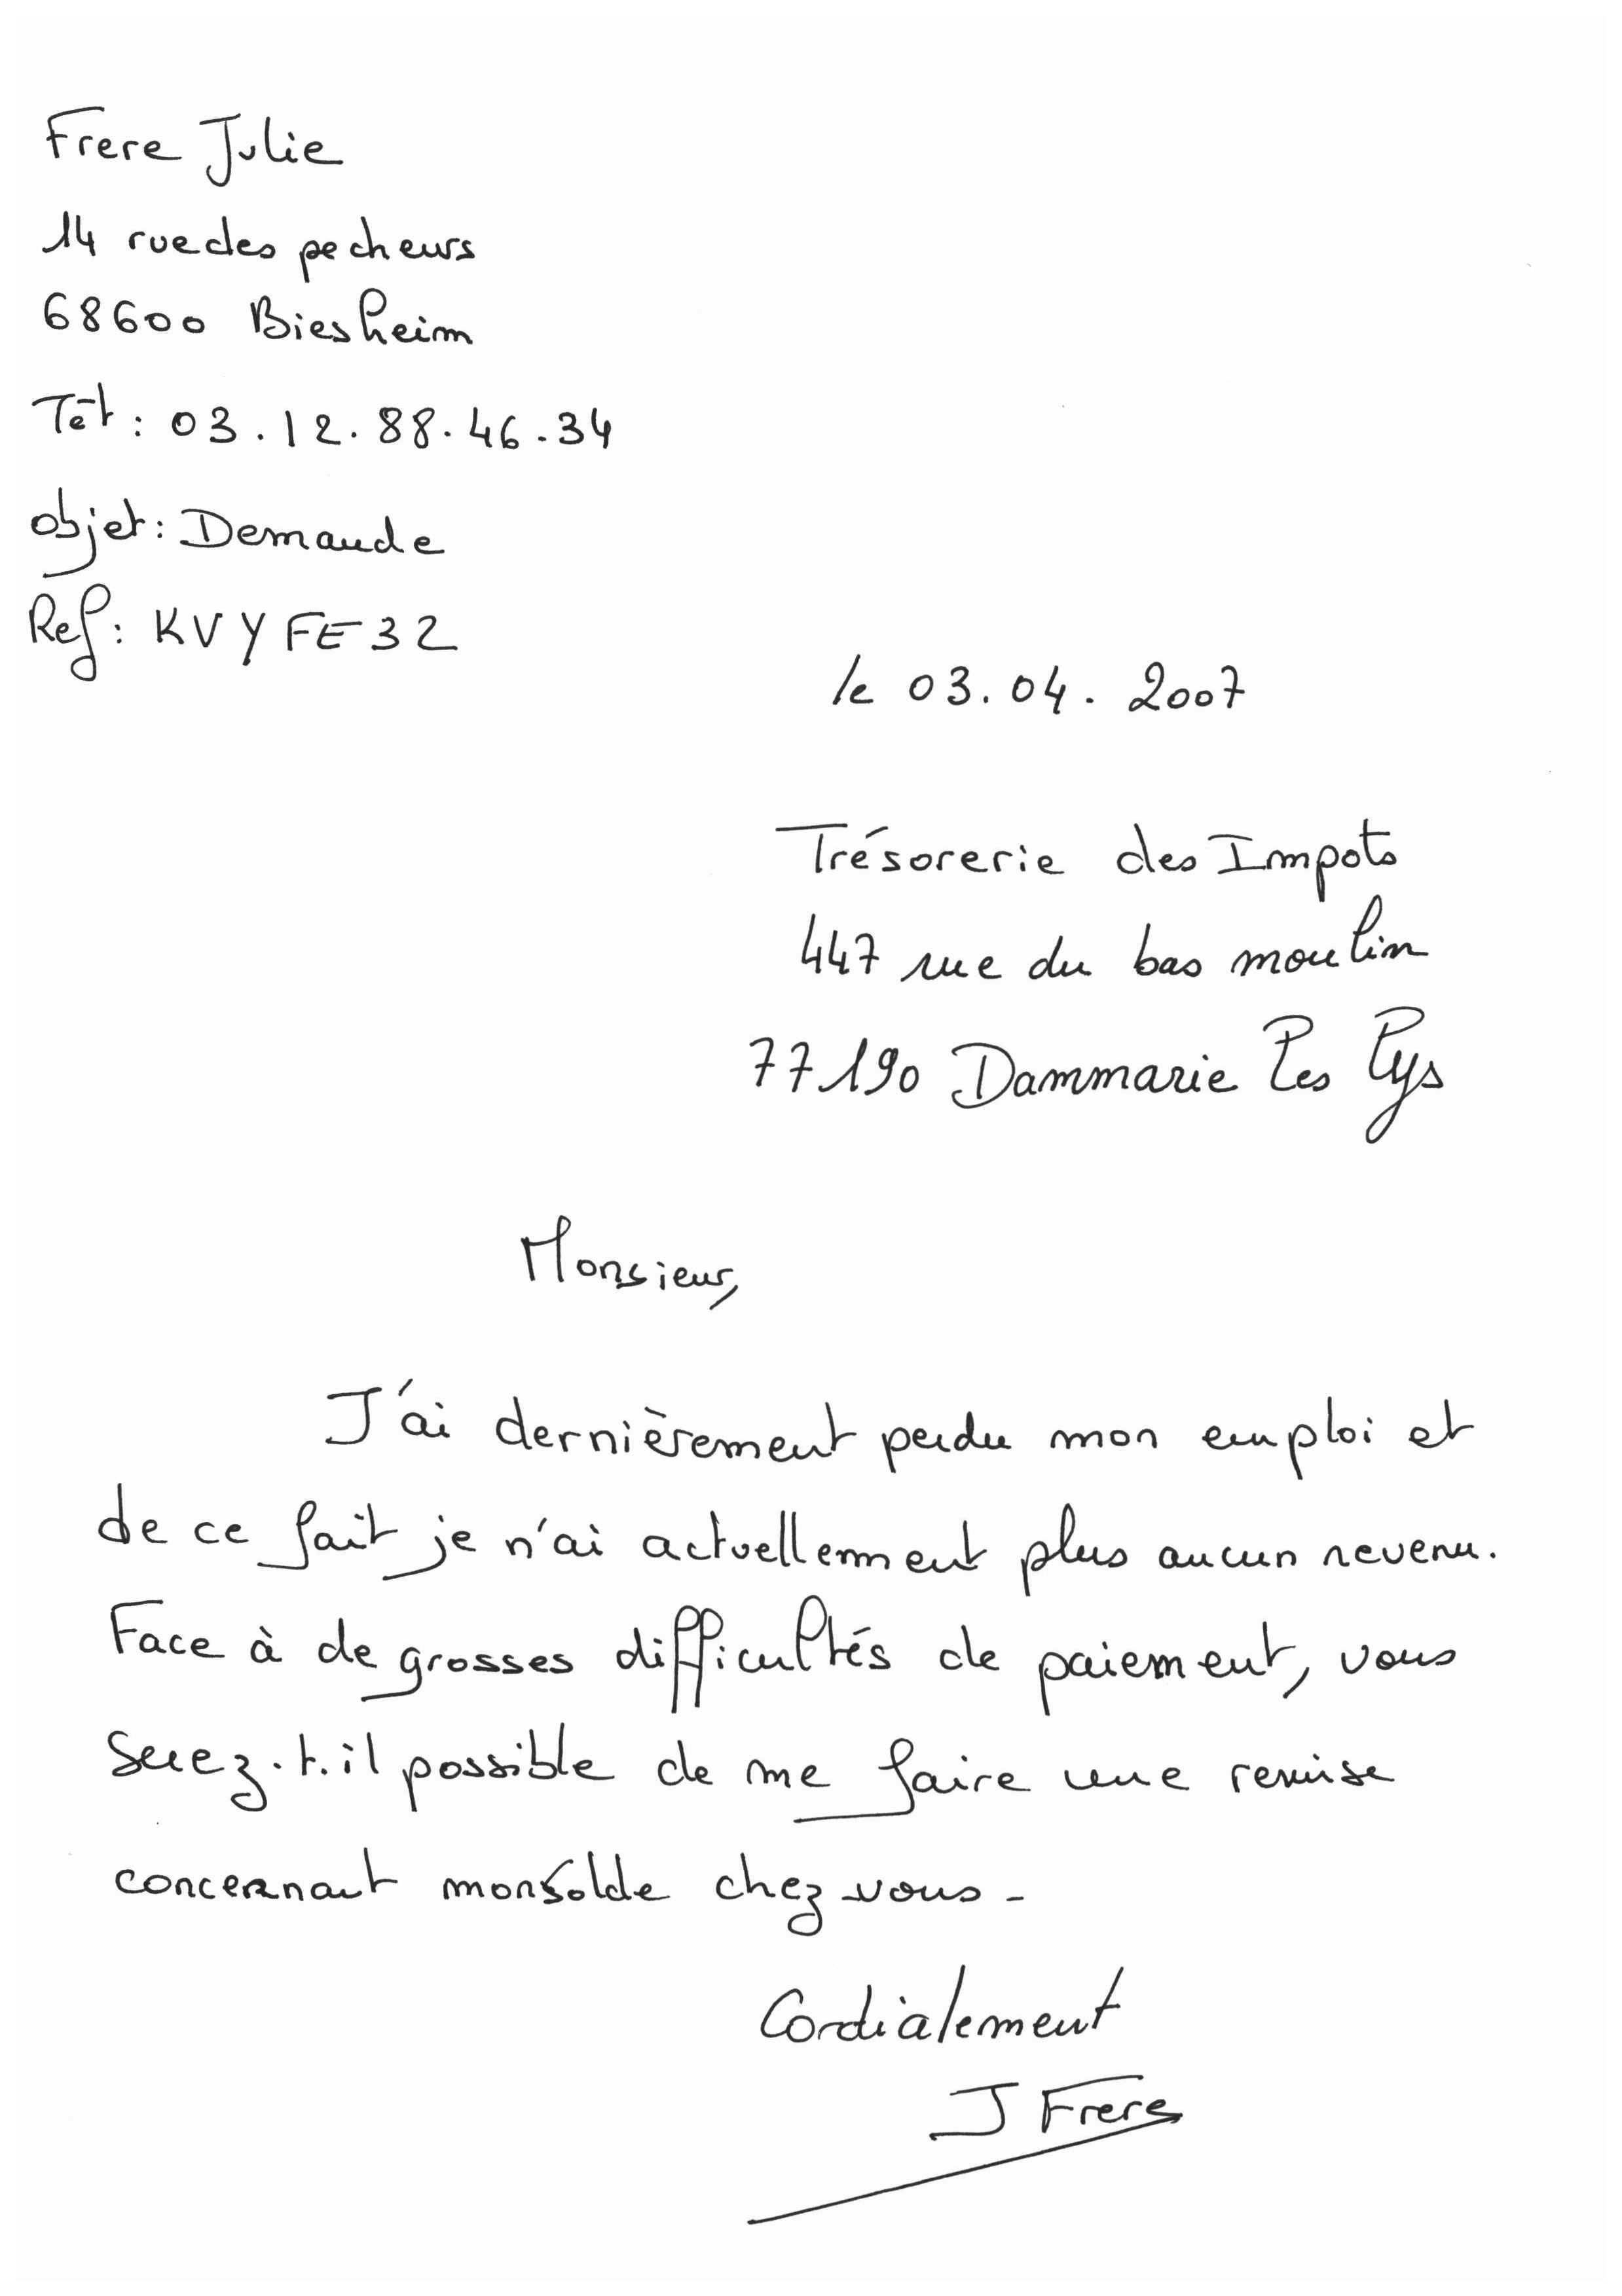 Frere Julie
14 rue des pecheurs
68600 Biesheim
Tèl: 03.12.88.46.34
objet: Demande
Ref: KVYFE32
le 03.04.2007
Trésorerie des Impots
447 rue du bas moulin
77190 Dammarie les lys
Monsieur,
J'ai dernièrement perdu mon emploi et
de ce fait je n'ai actuellement plus aucun revenu.
Face à de grosses difficultés de paiement, vous
serez-t-il possible de me faire une remise
concernant mon solde chez vous.
Cordialement
J Frere